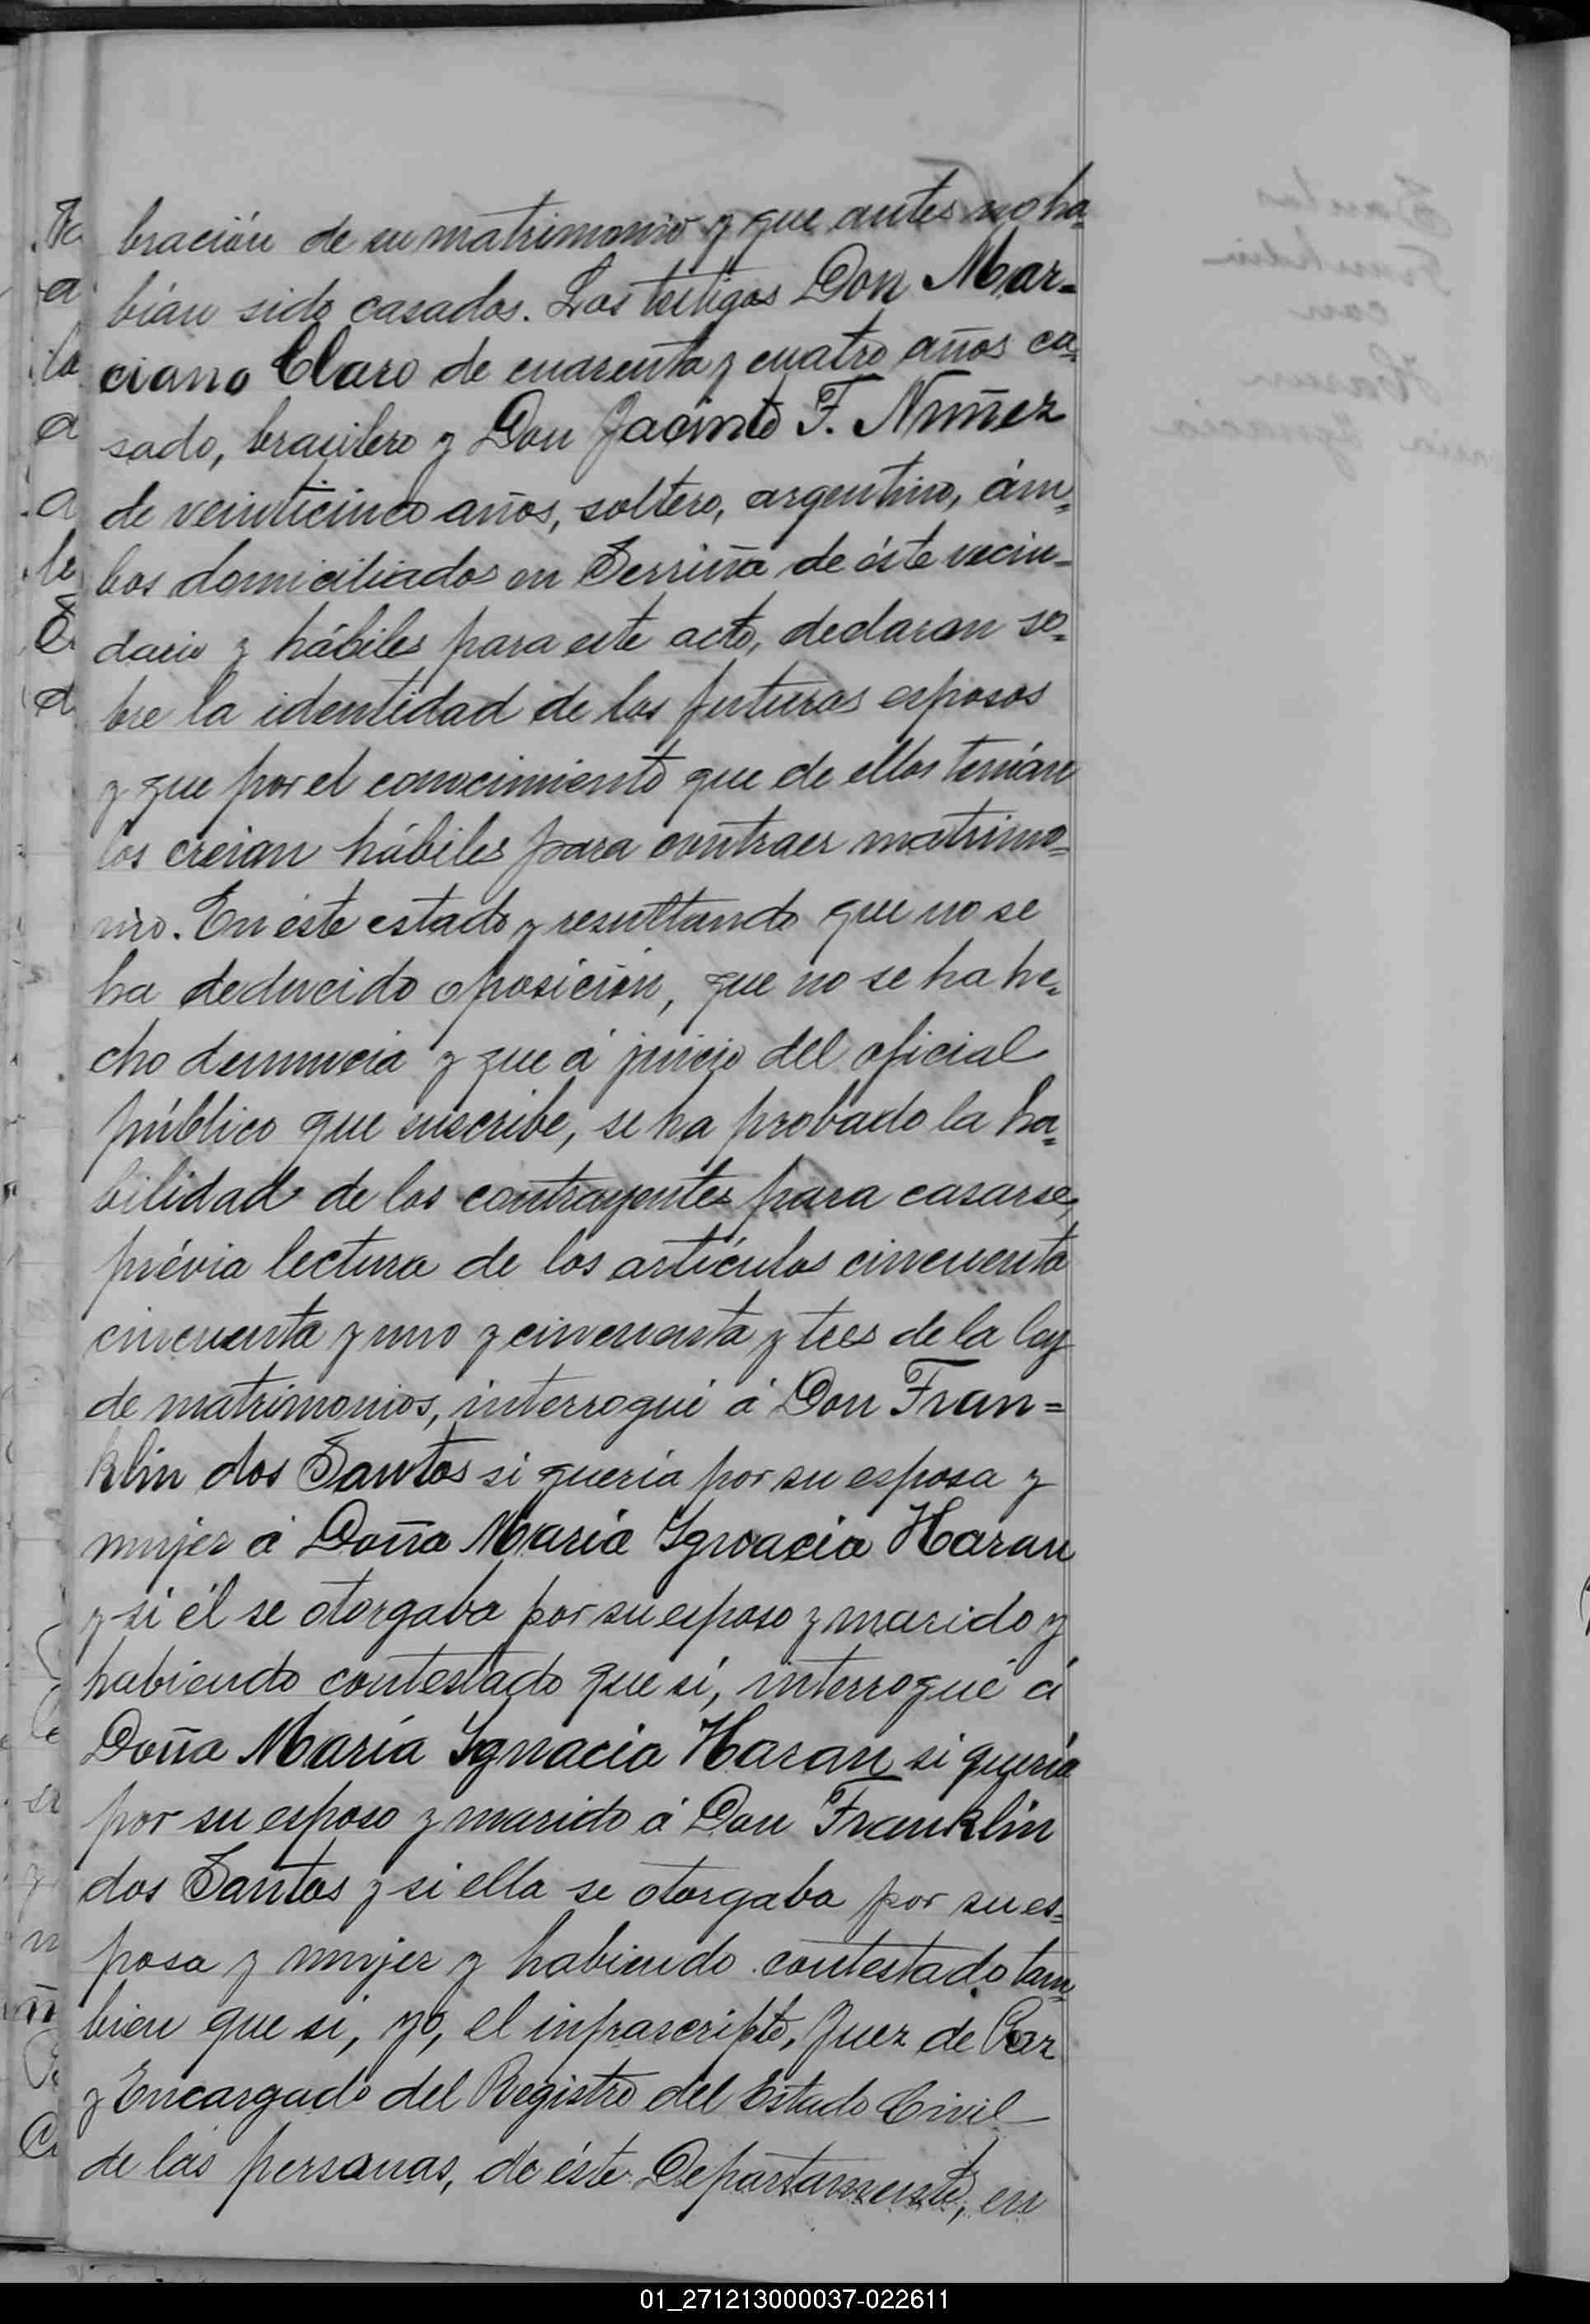 bración de su matrimonio y que antes no ha=
bían sido casados. Los testigos Don Mar=
ciano Claro de cuarenta y cuatro años ca=
sado, brasilero y Don Jacinto F. Nuñez
de veinticinco años, soltero, argentino, ám=
bos domiciliados en de éste vecin=
dario y hábiles para este acto, declaran so=
bre la identidad de los futuros esposos
y que por el conocimiento que de ellos tenían
los creian hábiles para contraer matrimo=
nio. En éste estado y resultando que no se
ha deducido oposición, que no se ha he=
cho denuncia y que á juicio del oficial
público que suscribe, se ha probado la ha=
bilidad de los contrayentes para casarse,
prévia lectura de los artículos cincuenta
cincuenta y uno y cincuenta y tres de la ley
de matrimonios, interrogué á Don Fran=
klin dos Santos si quería por su esposa y
mujer á Doña María Ignacia Haran
y si él se otorgaba por su esposo y marido y
habiendo contestado que sí, interrogué á
Doña María Ignacia Haran si quería
por su esposo y marido á Don Franklin
dos Santos y si ella se otorgaba por su es=
posa y mujer y habiendo contestado tam=
bien que si, yo, el infrascripto, Juez de Paz
y Encargado del Registro del Estado Civil
de las personas, de éste Departamento, en
01_271213000037-022611